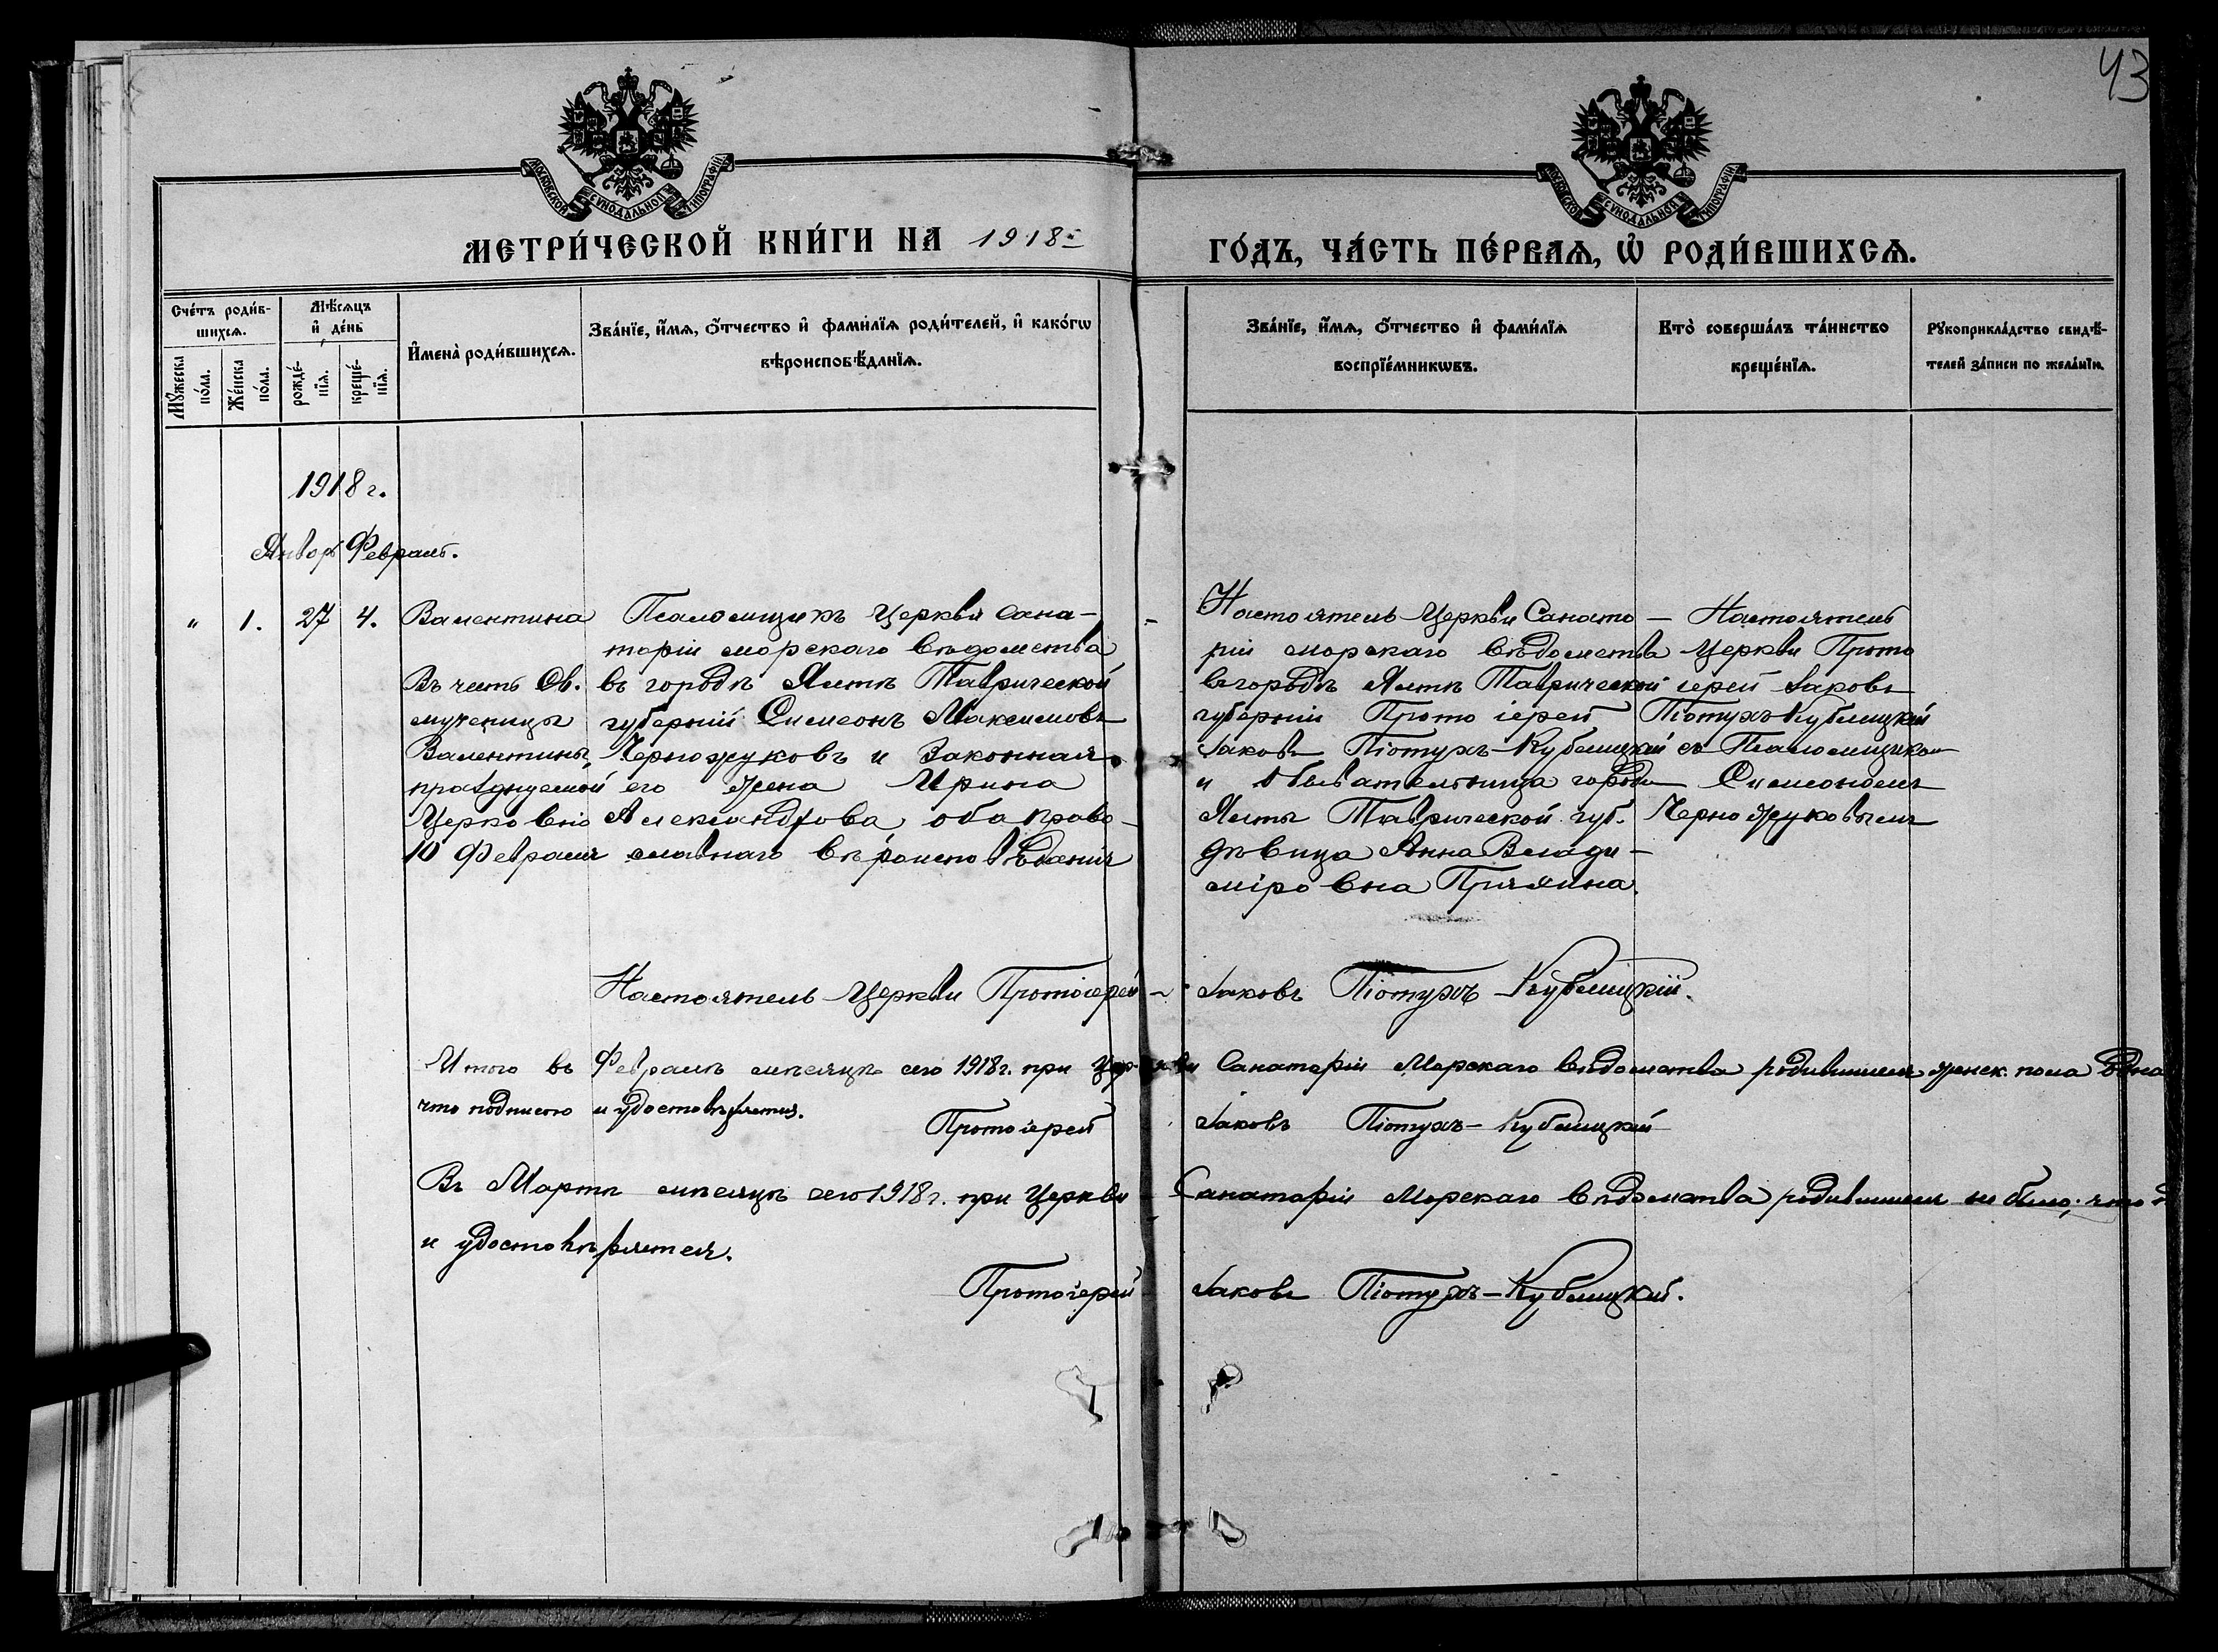 43
МОСКОВСКОЙ СУНОДАЛЬНОЙ ТИПОГРАФІИ
МОСКОВСКОЙ СУНОДАЛЬНОЙ ТИПОГРАФІИ
МЕТРИ́ЧЕСКОЙ КНИ́ГИ НА 1918й
ГО́ДЪ, ЧА́СТЬ ПЕ́РВАѦ, Ѡ҆ РОДИ́ВШИХСѦ.
Сче́тъ роди́в-
шихсѧ.
Мꙋжеска по́ла.
Же́нска по́ла.
Мѣ́сѧцъ
и҆ де́нь
рожде́-
нїѧ.
креще́-
нїѧ.
И҆мена̀ роди́вшихсѧ.
Зва́нїе, и҆́мѧ, ѻ҆́тчество и҆ фами́лїѧ роди́телей, и҆ како́гѡ
вѣроисповѣ́данїѧ.
Зва́нїе, и҆́мѧ, ѻ҆́тчество и҆ фами́лїѧ
воспрїе́мникѡвъ.
Кто̀ соверша́лъ та́инство
креще́нїѧ.
Рꙋкоприкла́дство свидѣ́-
телей за́писи по жела́нїю.
1918 г.
Январь Февраль.
" 1. 27 4.
Валентина
Въ честь Св.
мученицы
Валентины,
празднуемой
Церковью
10 Февраля
Псаломщикъ Церкви Сана-
торіи морскаго вѣдомства
въ городѣ Ялтѣ Таврической
губерніи Симеонъ Максимовъ
Черножуковъ и Законная
его жена Ирина
Александрова, оба право-
славнаго вѣроисповѣданія
Настоятель Церкви Санато-
ріи морскаго вѣдомства
въ городѣ Ялтѣ Таврической
губерніи Протоіерей
Іаковъ Піотухъ-Кублицкій
и обывательница города
Ялты Таврической губ.
дѣвица Анна Влади-
міровна
Настоятель
Церкви Прото
іерей Іаковъ
Піотухъ-Кублицкій
съ Псаломщикомъ
Симеономъ
Черножуковымъ
Настоятель Церкви Протоіерей Іаковъ Піотухъ-Кублицкій.
Итого въ Февралѣ мѣсяцѣ сего 1918 г. при Церкви Санаторіи Морскаго вѣдомства родившихся женск. пола одна
что подписью и удостовѣряется.
Протоіерей Іаковъ Піотухъ-Кублицкій
Въ Мартѣ мѣсяцѣ сего 1918 г. при Церкви Санаторіи Морскаго вѣдомства родившихся не было; что
и удостовѣряется.
Протоіерей Іаковъ Піотухъ-Кублицкій.